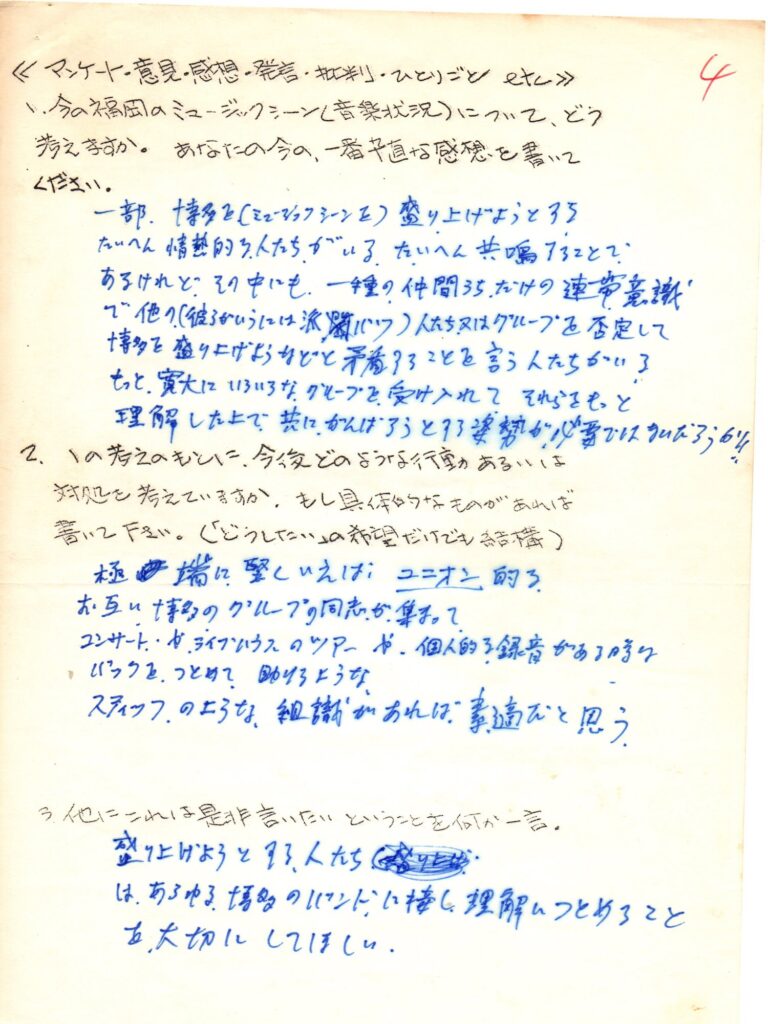 4
≪アンケート・意見・感想・発言・批判・ひとりごと etc≫
1、今の福岡のミュージックシーン(音楽状況)について、どう
考えますか。 あなたの今の、一番卒直な感想を書いて
ください。
一部、博多を(ミュージックシーンを)盛り上げようとする
たいへん情熱的な人たちがいる、たいへん共鳴することで
あるけれど、その中にも、一種の仲間うちだけの連帯意識
で他の(彼らがいうには派閥バツ)人たち又はグループを否定して
博多を盛り上げようなどと矛盾することを言う人たちがいる
もっと、寛大にいろいろなグループを受け入れて それらをもっと
理解した上で、共に、がんばろうとする姿勢が必要ではないだろうか!!
2、1の考えのもとに、今後どのような行動あるいは
対処を考えていますか、もし具体的なものがあれば
書いて下さい。(「どうしたい」の希望だけでも結構)
極端に堅くいえば、ユニオン的な
お互い博多のグループの同志が集まって
コンサート・や ライブハウスのツアーや、個人的な録音がある時は
バックを、つとめて 助けるような
スティッフのような、組織があれば、素適だと思う、
3、他にこれは是非言いたいということを何か一言。
盛り上げようとする人たち
は、あらゆる、博多のバンドに接し、理解につとめること
を、大切にしてほしい.